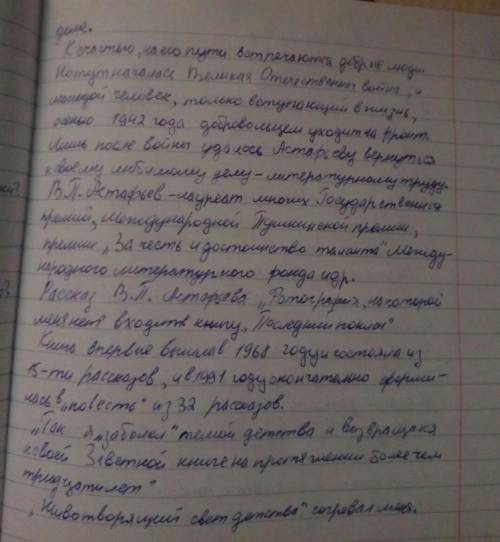 доме.
К счастью, на его пути встречаются добрые люди.
Но тут началась Великая Отечественная война, и
молодой человек, только вступающий в жизнь,
осенью 1942 года добровольцем уходит на фронт.
Лишь после войны удалось Астафьеву вернуться
к своему любимому делу - литературному труду.
В.П. Астафьев - лауреат многих Государственных
премий, Международной Пушкинской премии,
премии "За честь и достоинство таланта" Между-
народного литературного фонда и др.
Рассказ В.П. Астафьева "Фотография, на которой
меня нет" входит в книгу "Последний поклон"
Книга впервые вышла в 1968 году и состояла из
рассказов, и в 1991 году окончательно оформи-
лась в "повесть" из 32 рассказов.
"Так я "заболел" темой детства и возвращался
к своей Заветной книге на протяжении более чем
тридцати лет"
"Животворящий свет детства" согревал меня.